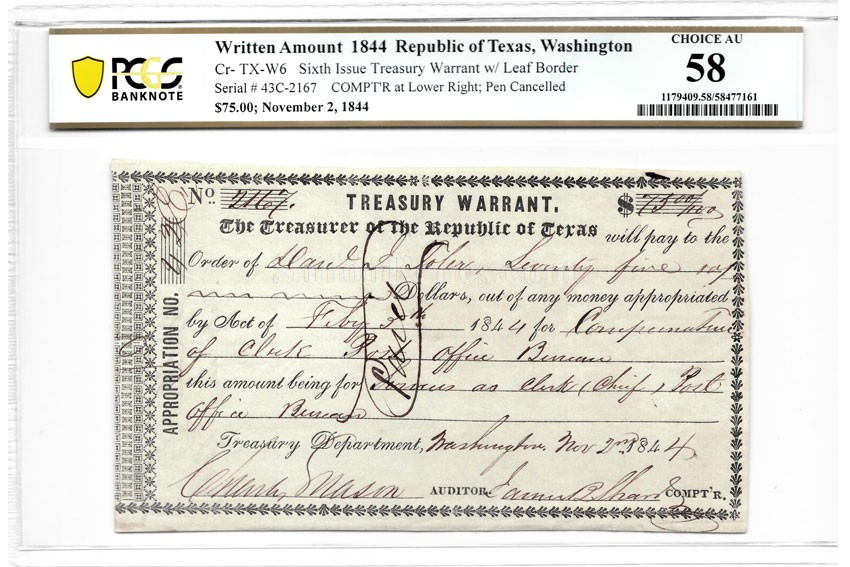 Written Amount 1844 Republic of Texas, Washington
Cr- TX-W6 Sixth Issue Treasury Warrant w/ Leaf Border
Serial # 43C-2167 COMPT'R at Lower Right; Pen Cancelled
$75.00; November 2, 1844
PCGS
BANKNOTE
CHOICE AU
58
1179409.58/58477161
No. 2167.
TREASURY WARRANT.
$75 00/100
The Treasurer of the Republic of Texas will pay to the
Order of Seventy five
Dollars, out of any money appropriated
by Act of Feby 1844 for Compensation
of Clerk Post office Bureau
this amount being for Services as clerk (Chief) Post
office Bureau
Treasury Department, Washington, Nov 2nd 1844
Charles Mason AUDITOR. James B. Shaw COMPT'R.
APPROPRIATION NO.